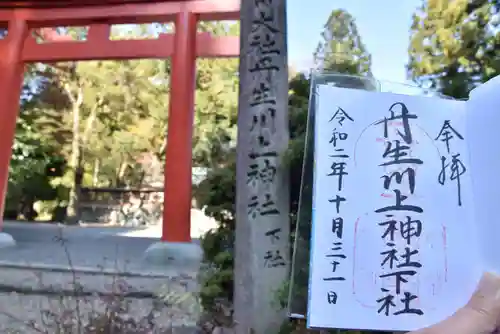 大社丹生川上神社下社
奉拝
丹生川上神社下社
令和二年十月三十一日